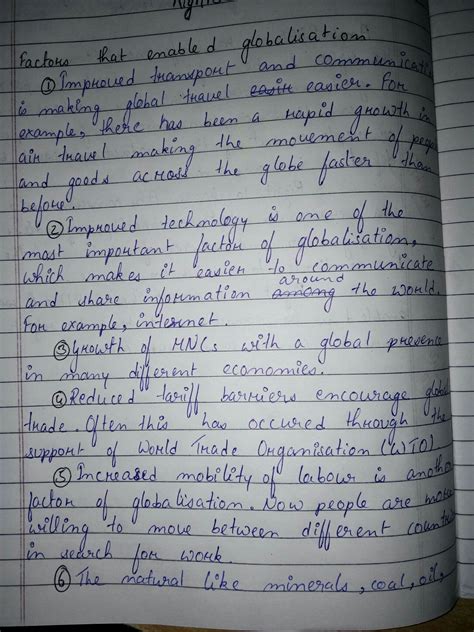 Factors that enabled globalisation
① Improved transport and communicati
is making global travel easir easier. For
example, there has been a rapid growth in
air travel making the movement of peop
and goods across the globe faster than
before.
② Improved technology is one of the
most important factor of globalisation,
which makes it easier to communicate
around
and share information among the world.
For example, internet.
③ Growth of MNCs with a global presence
in many different economies.
④ Reduced tariff barriers encourage global
trade. Often this has occured through the
support of World Trade Organisation (WTO)
⑤ Increased mobility of labour is anoth
factor of globalisation. Now people are more
willing to move between different countri
in search for work
⑥ The natural like minerals, coal, oil,